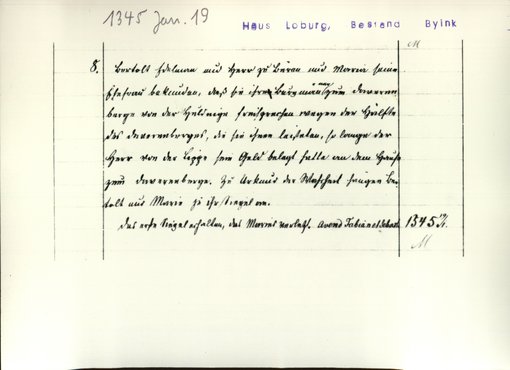 1345 Jan. 19
Haus Loburg, Bestand Byink
M
8. Bertolt Edelman und Herr zu Büren und Marria seine
Ehefrau bekunden, daß sie ihre Burgmänner zum Deveren
berge von der Huldinge freisprechen wegen der Hälfte
des Deverenberges, die sie ihnen leisteten, so lange der
Herr von der Lippe sein Geld belegt hatte an dem Hause
zum Deverenberge. Zu Urkund der Wahrheit hängen Ber-
tolt und Marie ihr Siegel an.
Das erste Siegel erhalten, das Mariens verletzt. Avend Fabiani et Sebasti
1345 19/1.
M